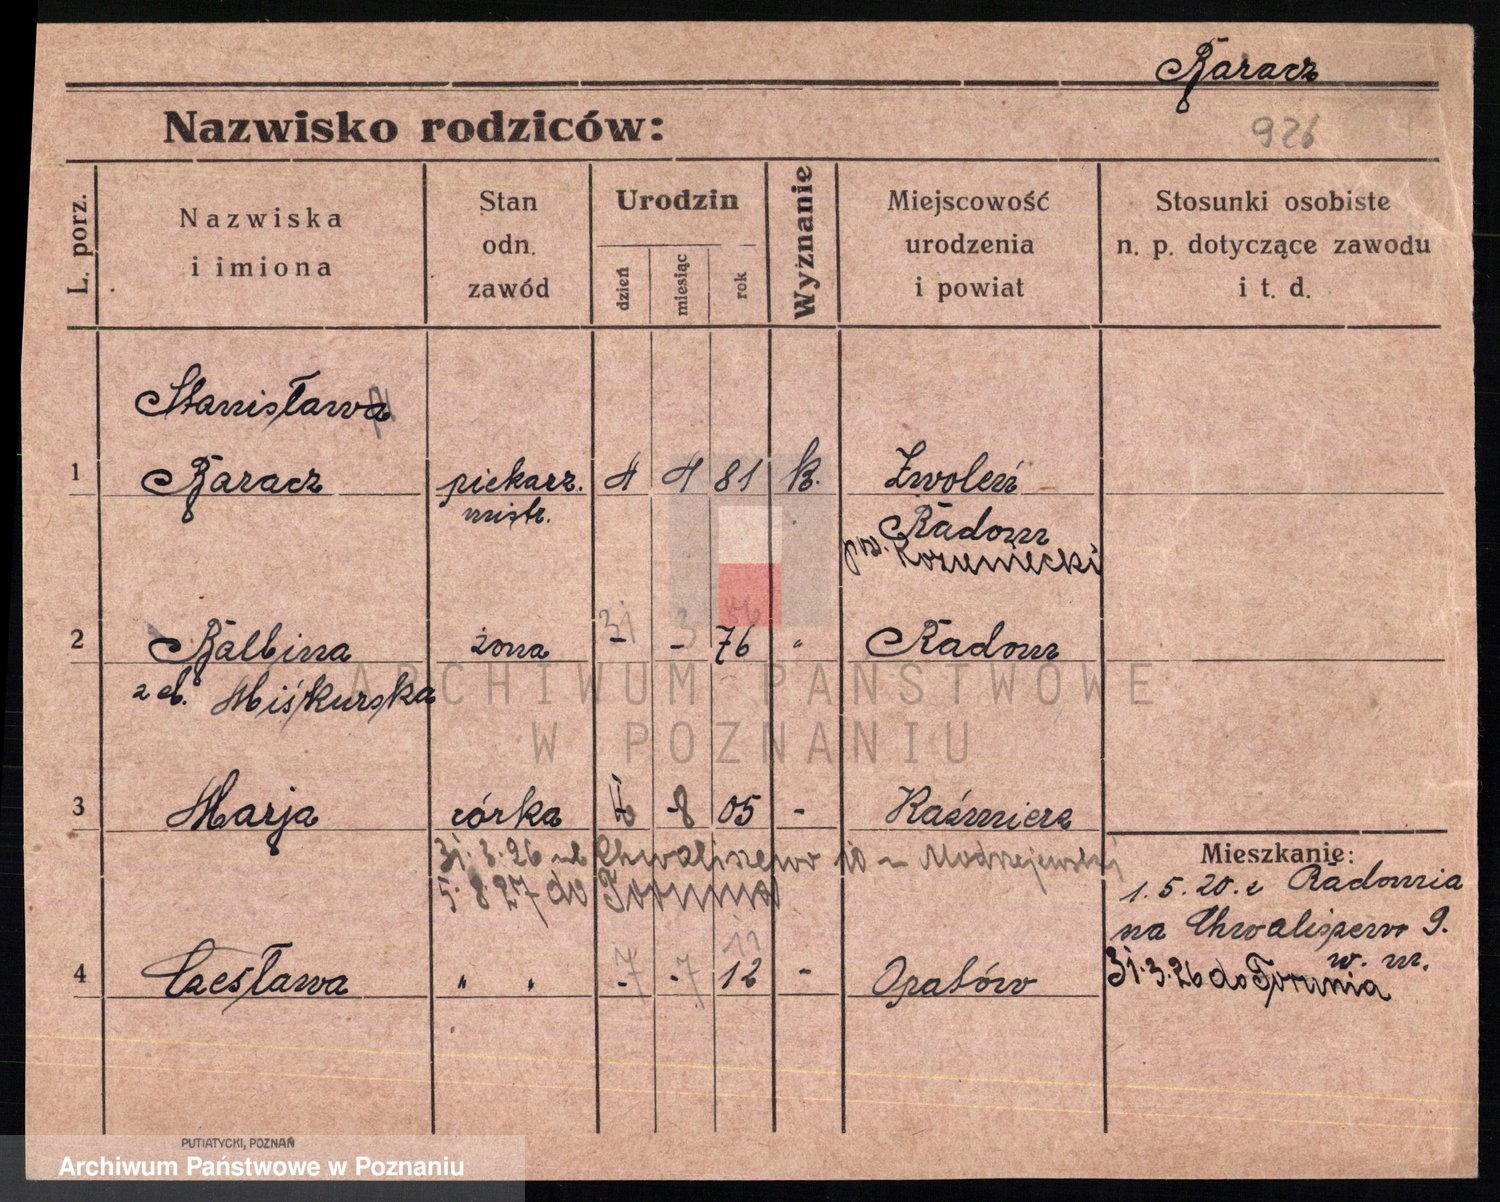 Baracz
Nazwisko rodziców:
926
L. porz.
Nazwiska
i imiona
Stan
odn.
zawód
Urodzin
dzień
miesiąc
rok
Wyznanie
Miejscowość
urodzenia
i powiat
Stosunki osobiste
n. p. dotyczące zawodu
i t. d.
Stanisława
1 Baracz piekarz. 4 4 81 k. Zwoleń
mistr. Radom
pow. Kozieniecki
31 3
2 Balbina żona - - 76 " Radom
z d. Miśkurska
ARCHIWUM PAŃSTWOWE
W POZNANIU
3 Marja córka 8 05 - Kaźmierz
31.3.26 Chwaliszewo 10 Modrzejewski
5.8.27 do Torunia
Mieszkanie:
1.5.20. z Radomia
na Chwaliszewo 9.
w. m.
31.3.26 do Torunia
11
4 Czesława " " 7 7 12 - Opatów
PUTIATYCKI, POZNAŃ
Archiwum Państwowe w Poznaniu